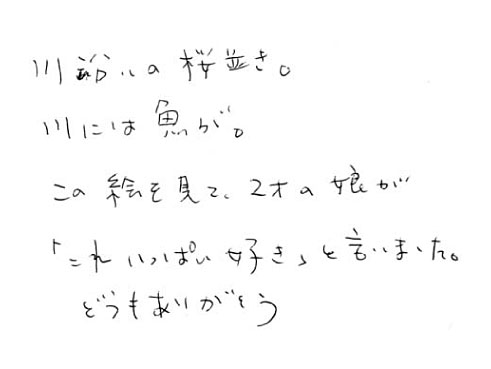 川沿いの桜並き。
川には魚が。
この絵を見て、2才の娘が
「これいっぱい好き」と言いました。
どうもありがとう